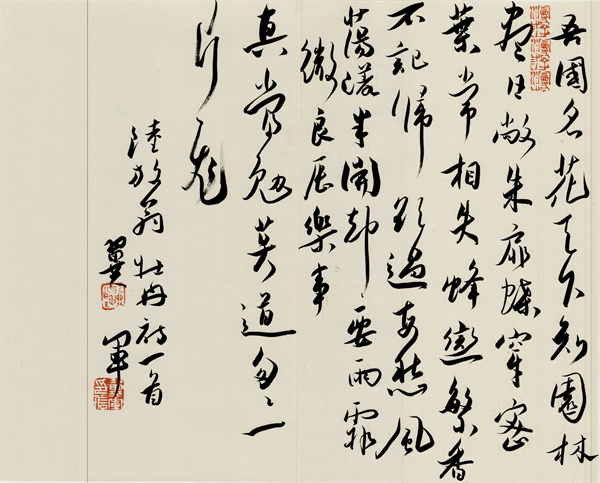 吾國名花天下知園林
盡日敞朱扉蝶穿密
葉常相失蜂戀繁香
不記歸欲過每愁風
蕩漾半開却要雨霏
微良辰樂事
真當勉莫道匆〻一
片飛
陸放翁牡丹詩一首
翼軍